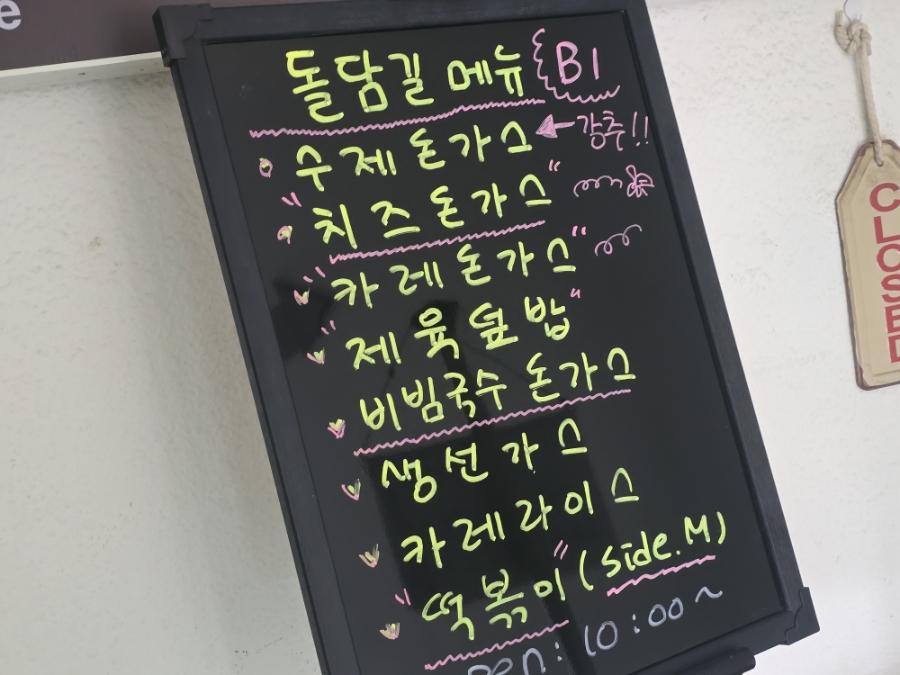 e
돌담길 메뉴 B1
수제돈가스 ← 강추!!
치즈돈가스"
"카레돈가스"
"제육덮밥"
비빔국수 돈가스
생선가스
카레라이스
"떡볶이" (side.M)
open: 10:00~
CLOSED